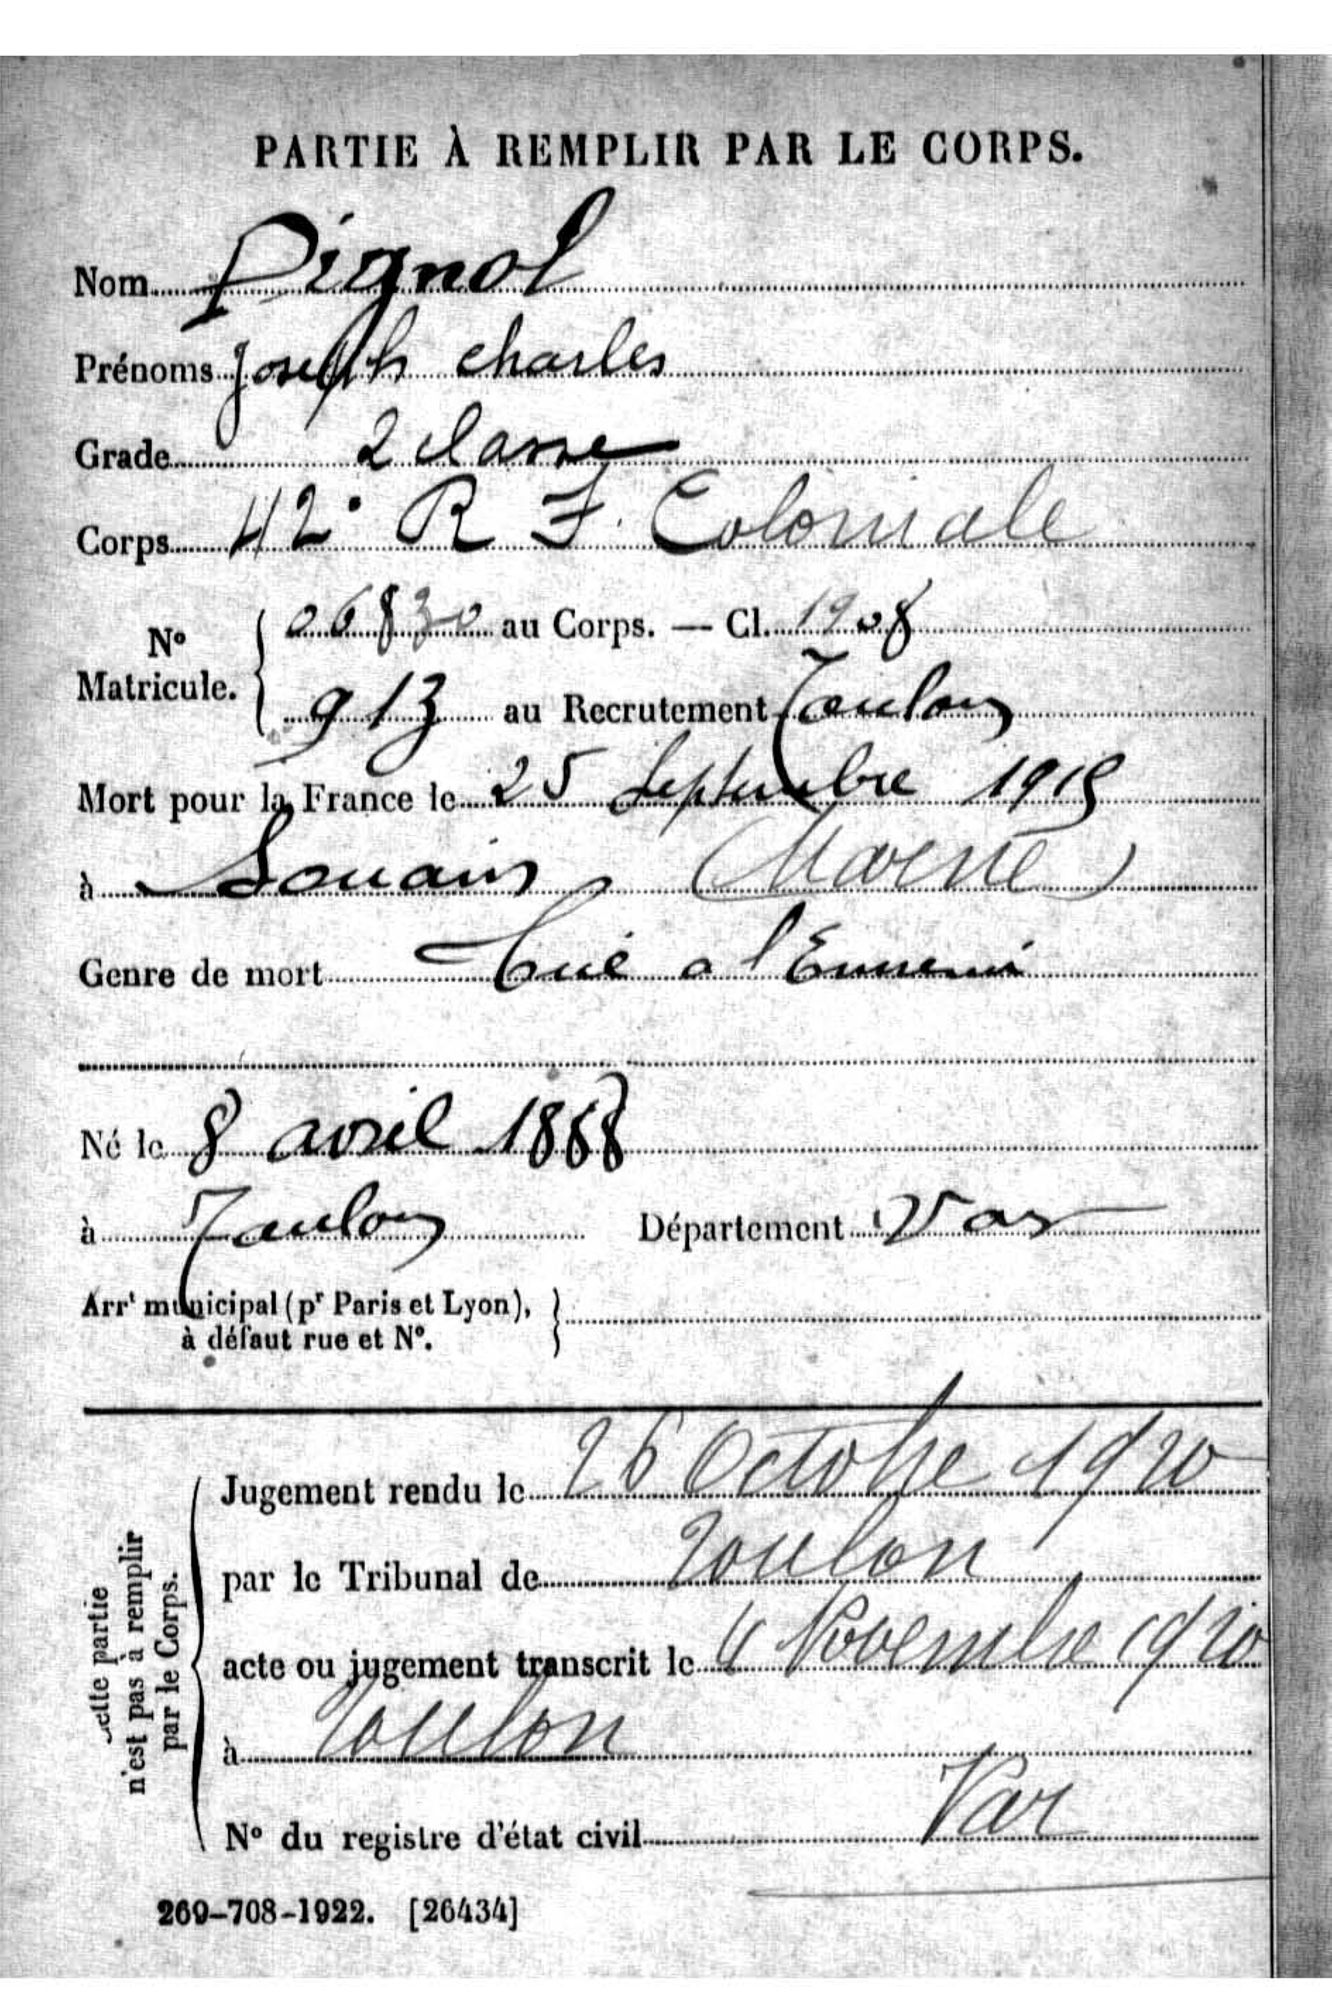 PARTIE À REMPLIR PAR LE CORPS.
Nom Pignol
Prénoms Joseph Charles
Grade 2 classe
Corps 42e R I Coloniale
N° Matricule. { 06830 au Corps. — Cl. 1908
913 au Recrutement Toulon
Mort pour la France le 25 Septembre 1915
à Souain (Marne)
Genre de mort Tué a l'Ennemi
Né le 8 avril 1888
à Toulon Département Var
Arrt municipal (pr Paris et Lyon), }
à défaut rue et N°.
Cette partie
n'est pas à remplir
par le Corps.
Jugement rendu le 26 Octobre 1920
par le Tribunal de Toulon
acte ou jugement transcrit le Novembre 1920
à Toulon
Var
N° du registre d'état civil
269-708-1922. [26434]